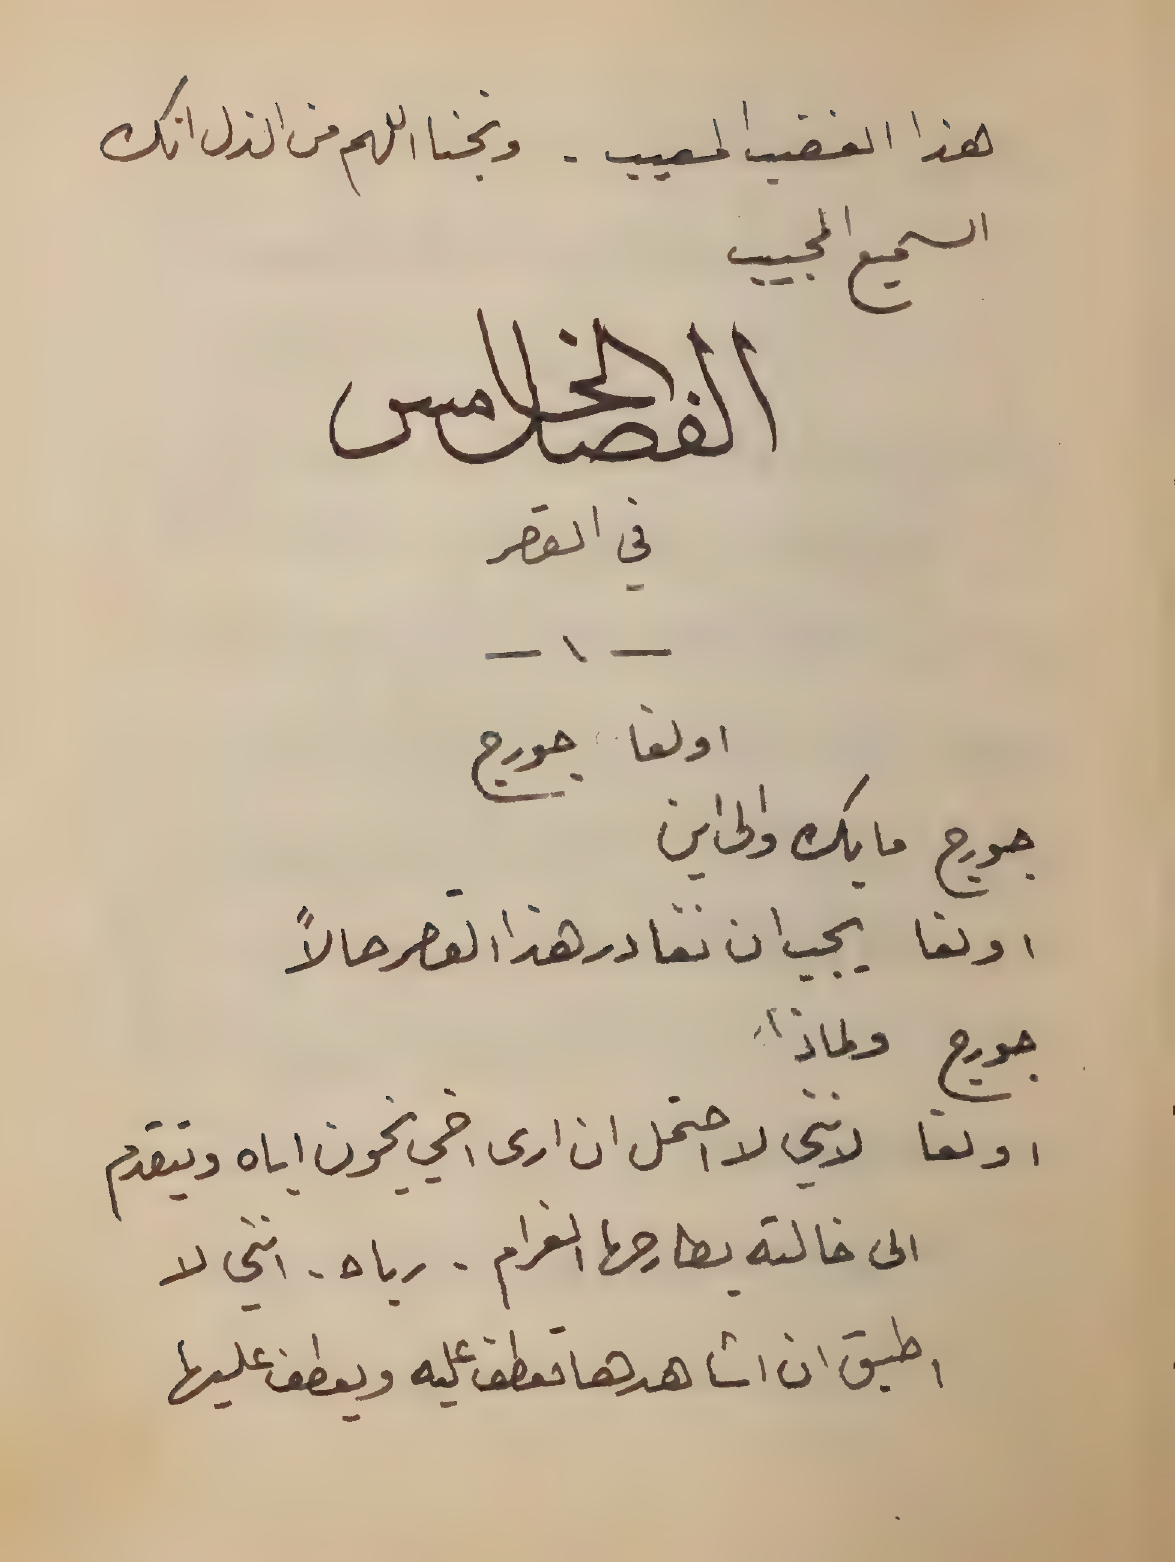 هذا الغضب المعيب . ونجنا اللهم من الذل انك
السميع المجيب
الفصل الخامس
في القصر
— ١ —
اولغا جورج
جورج ما بك والى اين
اولغا يجب ان نغادر هذا القصر حالاً
جورج ولماذا
اولغا لانني لا احتمل ان ارى اخي يخون اباه ويتقدم
الى خالته يطارحها الغرام . رباه . انني لا
اطيق ان اشاهدها تعطف عليه ويعطف عليها